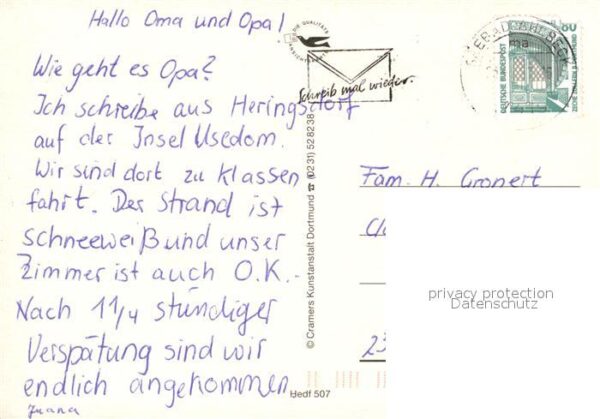 Hallo Oma und Opa!
Wie geht es Opa?
Ich schreibe aus Heringsdorf
auf der Insel Usedom.
Wir sind dort zu Klassen
fahrt. Der Strand ist
schneeweiß und unser
Zimmer ist auch O.K.-
Nach 1 1/4 stündiger
Verspätung sind wir
endlich angekommen.
Schreib mal wieder.
© Cramers Kunstanstalt Dortmund ☎ (0231) 528238
Hedf 507
80
DEUTSCHE BUNDESPOST
Fam. H. Gronert
23
privacy protection
Datenschutz